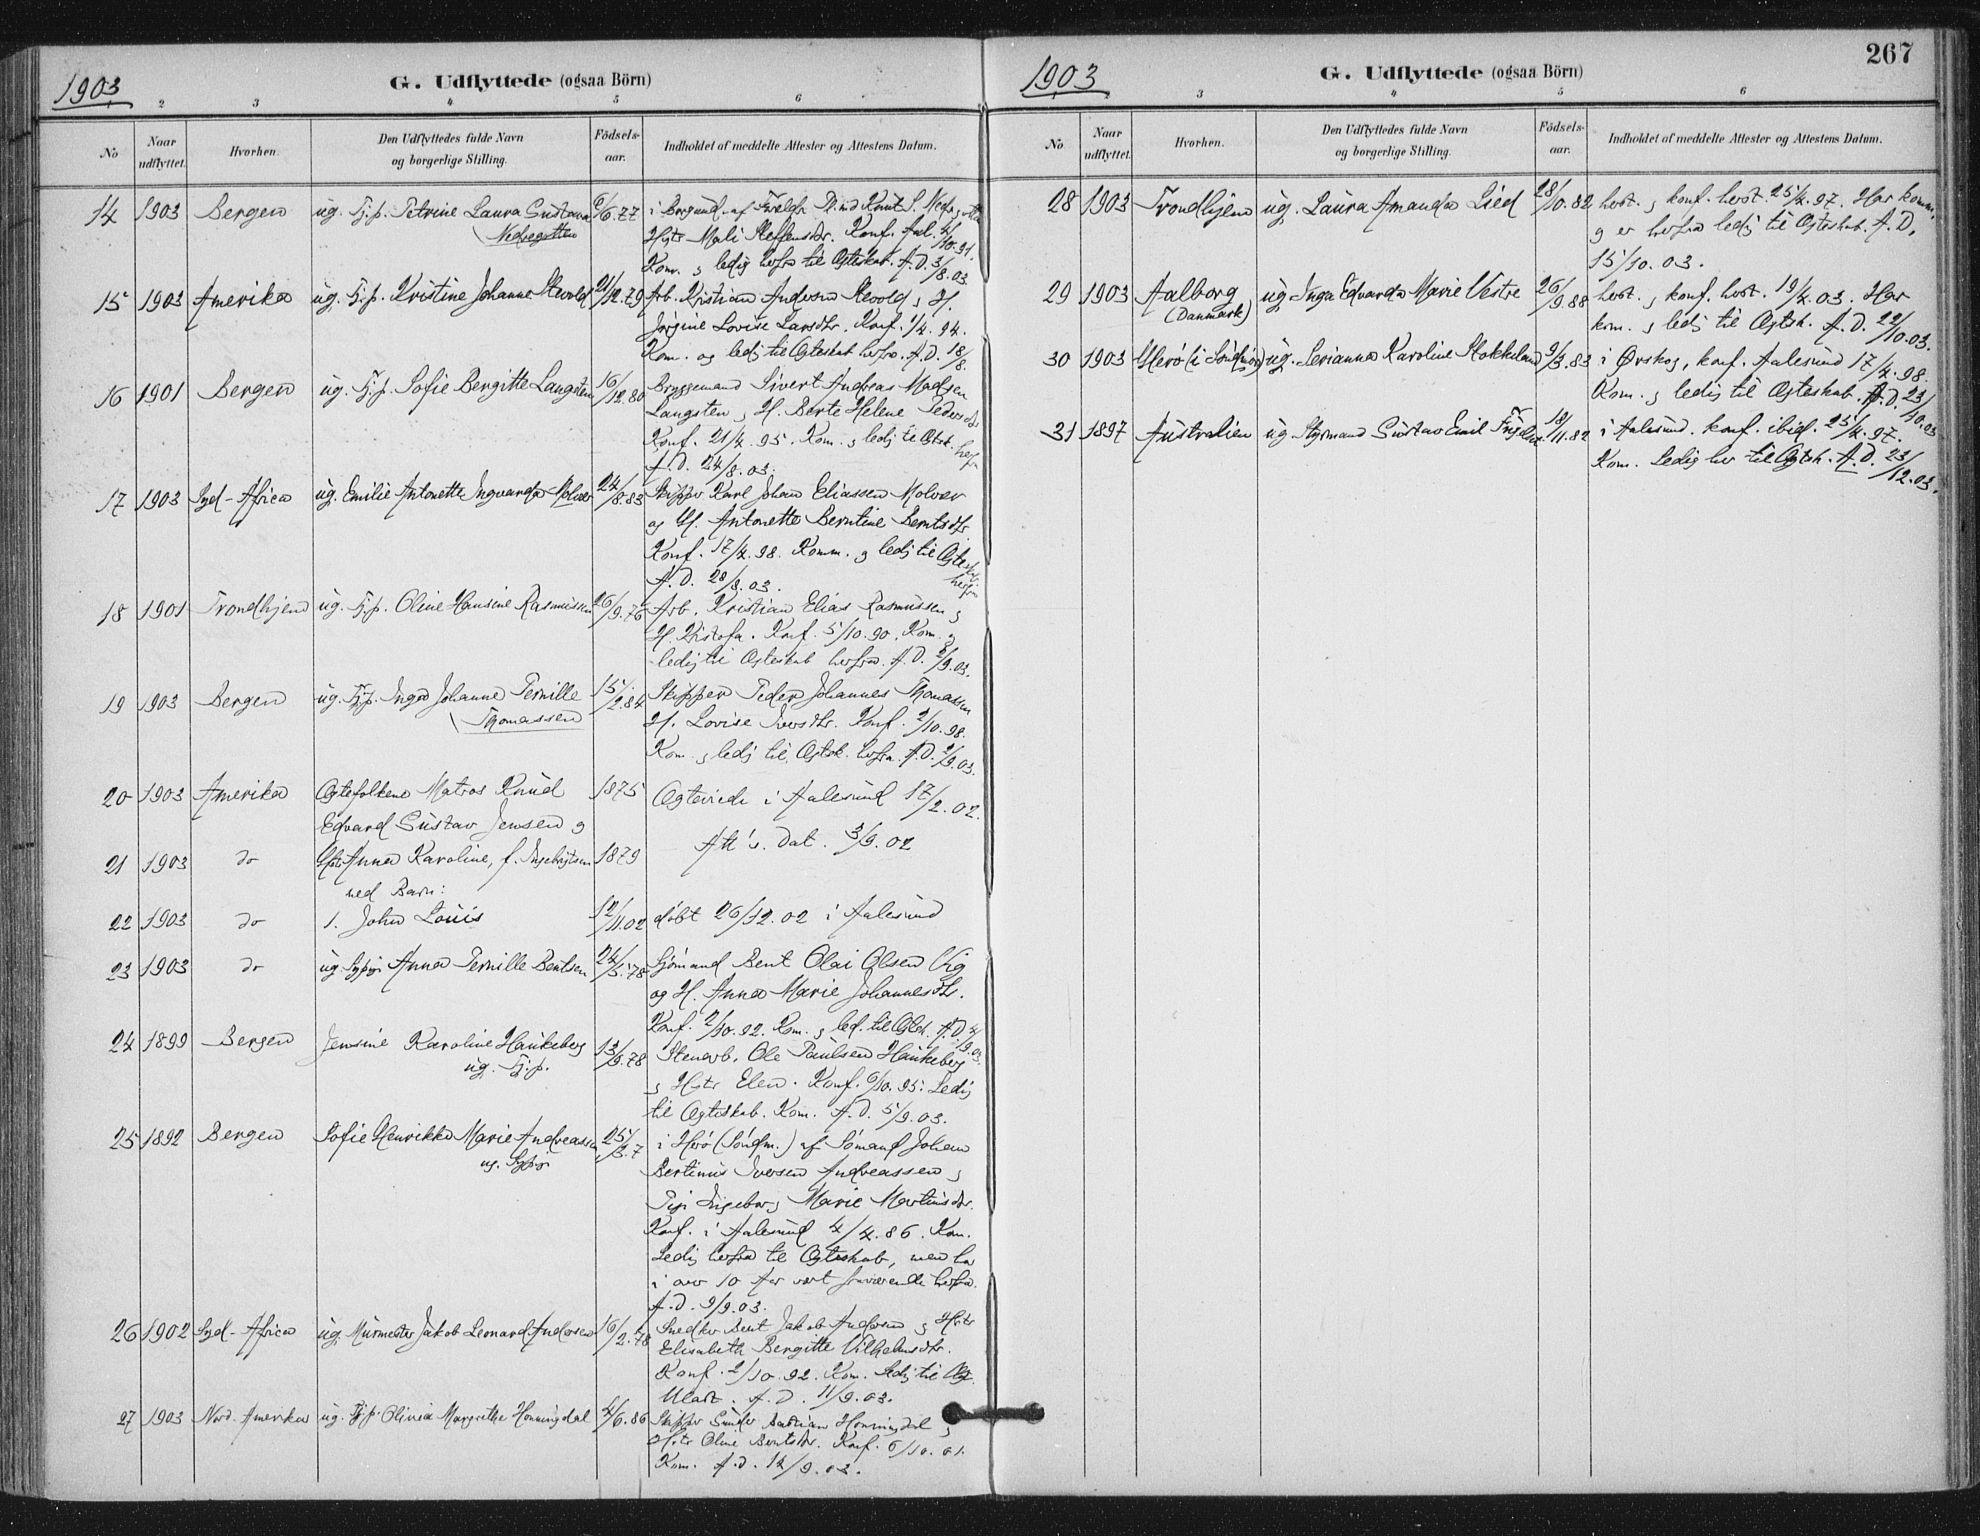 1903
G. Udflyttede (ogsaa Börn)
2 3 4 5 6
No
Naar udflyttet.
Hvorhen.
Den Udflyttedes fulde Navn og borgerlige Stilling.
Födsels-aar.
Indholdet af meddelte Attester og Attestens Datum.
14 1903 Bergen ug. Tj.p. Petrine Laura Gustava 6/6.77 i Borgund af
Nedregotten Hstr Mali Steffensdtr. Konf. Aal. 4/10.91.
Kom. og ledig herfra til Ægteskab. A.D. 3/8.03.
15 1903 Amerika ug. Tj.p. Kristine Johanne Stevold 21/12.79 Arb. Kristian Andersen Stevold og H.
Jørgine Lovise Larsdtr. Konf. 1/4.94.
Kom. og ledig til Ægteskab herfra. A.D. 18/8.
16 1901 Bergen ug. Tj.p. Sofie Bergitte Langsten 16/12.80 Bryggemand Sivert Andreas Madsen
Langsten og H. Berte Helene Pedersdtr
Konf. 21/4.95. Kom. og ledig til Ægtsk. herfra
A.D. 24/8.03.
17 1903 Syd-Africa ug. Emilie Antonette Ingvarda Molvær 24/8.83 Skipper Karl Johan Eliassen Molvær
og H. Antonette Berntine Berntsdtr.
Konf. 17/4.98. Komm. og ledig til Ægteskab
herfra
A.D. 28/8.03.
18 1901 Trondhjem ug. Tj.p. Oline Hansine Rasmussen 26/9.76 Arb. Kristian Elias Rasmussen og
H. Kristofa. Konf. 5/10.90. Kom. og
ledig til Ægteskab herfra. A.D. 2/9.03.
19 1903 Bergen ug. Tj.p. Inga Johanne Pernille 15/2.84 Skipper Peder Johannes Thomassen
Thomassen H. Lovise Iversdtr. Konf. 2/10.98.
Kom. og ledig til Ægtsk. herfra. A.D. 2/9.03.
20 1903 Amerika Ægtefolkene Matros Knud 1875 Ægteviede i Aalesund 17/2.02.
Edvard Gustav Jensen og
Att's. Dat. 3/9.02
21 1903 do Hstr Anna Karoline, f. Ingebrigtsen 1879
med Barn:
22 1903 do 1. John Louis 12/11.02 døbt 26/12.02 i Aalesund
23 1903 do ug. Sypige Anna Pernille Bentsen 24/5.78 Sjømand Bent Olai Olsen Vig
og H. Anna Marie Johannesdtr.
Konf. 2/10.92. Kom. og led. til Ægtsk. A.D. 4/9.03.
24 1899 Bergen Jensine Karoline Haukeberg 13/9.78 Stenarb. Ole Paulsen Haukeberg
ug. Tj.p. og Hstr Elen. Konf. 6/10.95. Ledig
til Ægteskab. Kom. A.D. 5/9.03.
25 1892 Bergen Sofie Henrikka Marie Andreassen 25/3.7 i Herø (Søndm.) af Sømand Johan
ug. Sypige Bertinus Iversen Andreassen og
Pige Ingeborg Marie Martinusdtr.
Konf. i Aalesund 4/4.86. Kom.
Ledig herfra til Ægteskab, men har
i over 10 Aar vært fraværende herfra.
A.D. 9/9.03.
26 1902 Syd-Africa ug. Murmester Jakob Leonard Andersen 16/2.78 Snedker Bent Jakob Andersen og Hstr
Elisabeth Bergitte Vilhelmsdtr.
Konf. 2/10.92. Kom. Ledig til Ægt.
A.D. 11/9.03.
27 1903 Nord-Amerika ug. Tj.p. Olivia Margrethe Honningdal 4/6.86 Skipper Honningdal og
Hstr Oline Berntsdtr. Konf. 6/10.01.
Kom. A.D. 12/9.03.
1903
G. Udflyttede (ogsaa Börn)
267
3 4 5 6
No
Naar udflyttet.
Hvorhen.
Den Udflyttedes fulde Navn og borgerlige Stilling.
Födsels-aar.
Indholdet af meddelte Attester og Attestens Datum.
28 1903 Trondhjem ug. Laura Amanda Lied 28/10.82 herst. og konf. herst. 25/4.97. Har komm.
og er herfra ledig til Ægteskab. A.D.
15/10.03.
29 1903 Aalborg ug. Inga Edvarda Marie Vestre 26/9.88 herst. og konf. herst. 19/4.03. Har
(Danmark) kom. og ledig til Ægtsk. A.D. 22/10.03.
30 1903 Herø (i Søndmør) ug. Serianna Karoline Stokkeland 9/3.83 i Ørskog, konf. Aalesund 17/4.98.
Kom. og ledig til Ægteskab. A.D. 23/10.03
31 1897 Australien ug. Styrmand Gustav Emil 18/11.82 i Aalesund. konf. ibid. 25/4.97.
Kom. Ledig her til Ægtsk. A.D. 23/12.03.